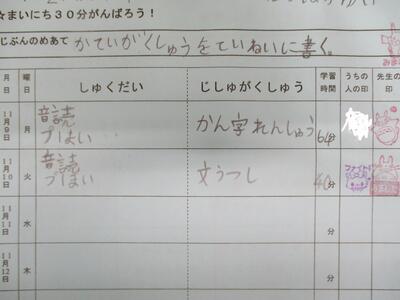 ☆まいにち３０分がんばろう！
じぶんのめあて かていがくしゅうをていねいに書く。
月日 曜日 しゅくだい じしゅがくしゅう 学習時間 うちの人の印 先生の印
11月9日 月 音読 かん字れんしゅう 64分
プはい
11月10日 火 音読 文うつし 40分 ファイト!
プはい
11月11日 水 分
11月12日 木 分